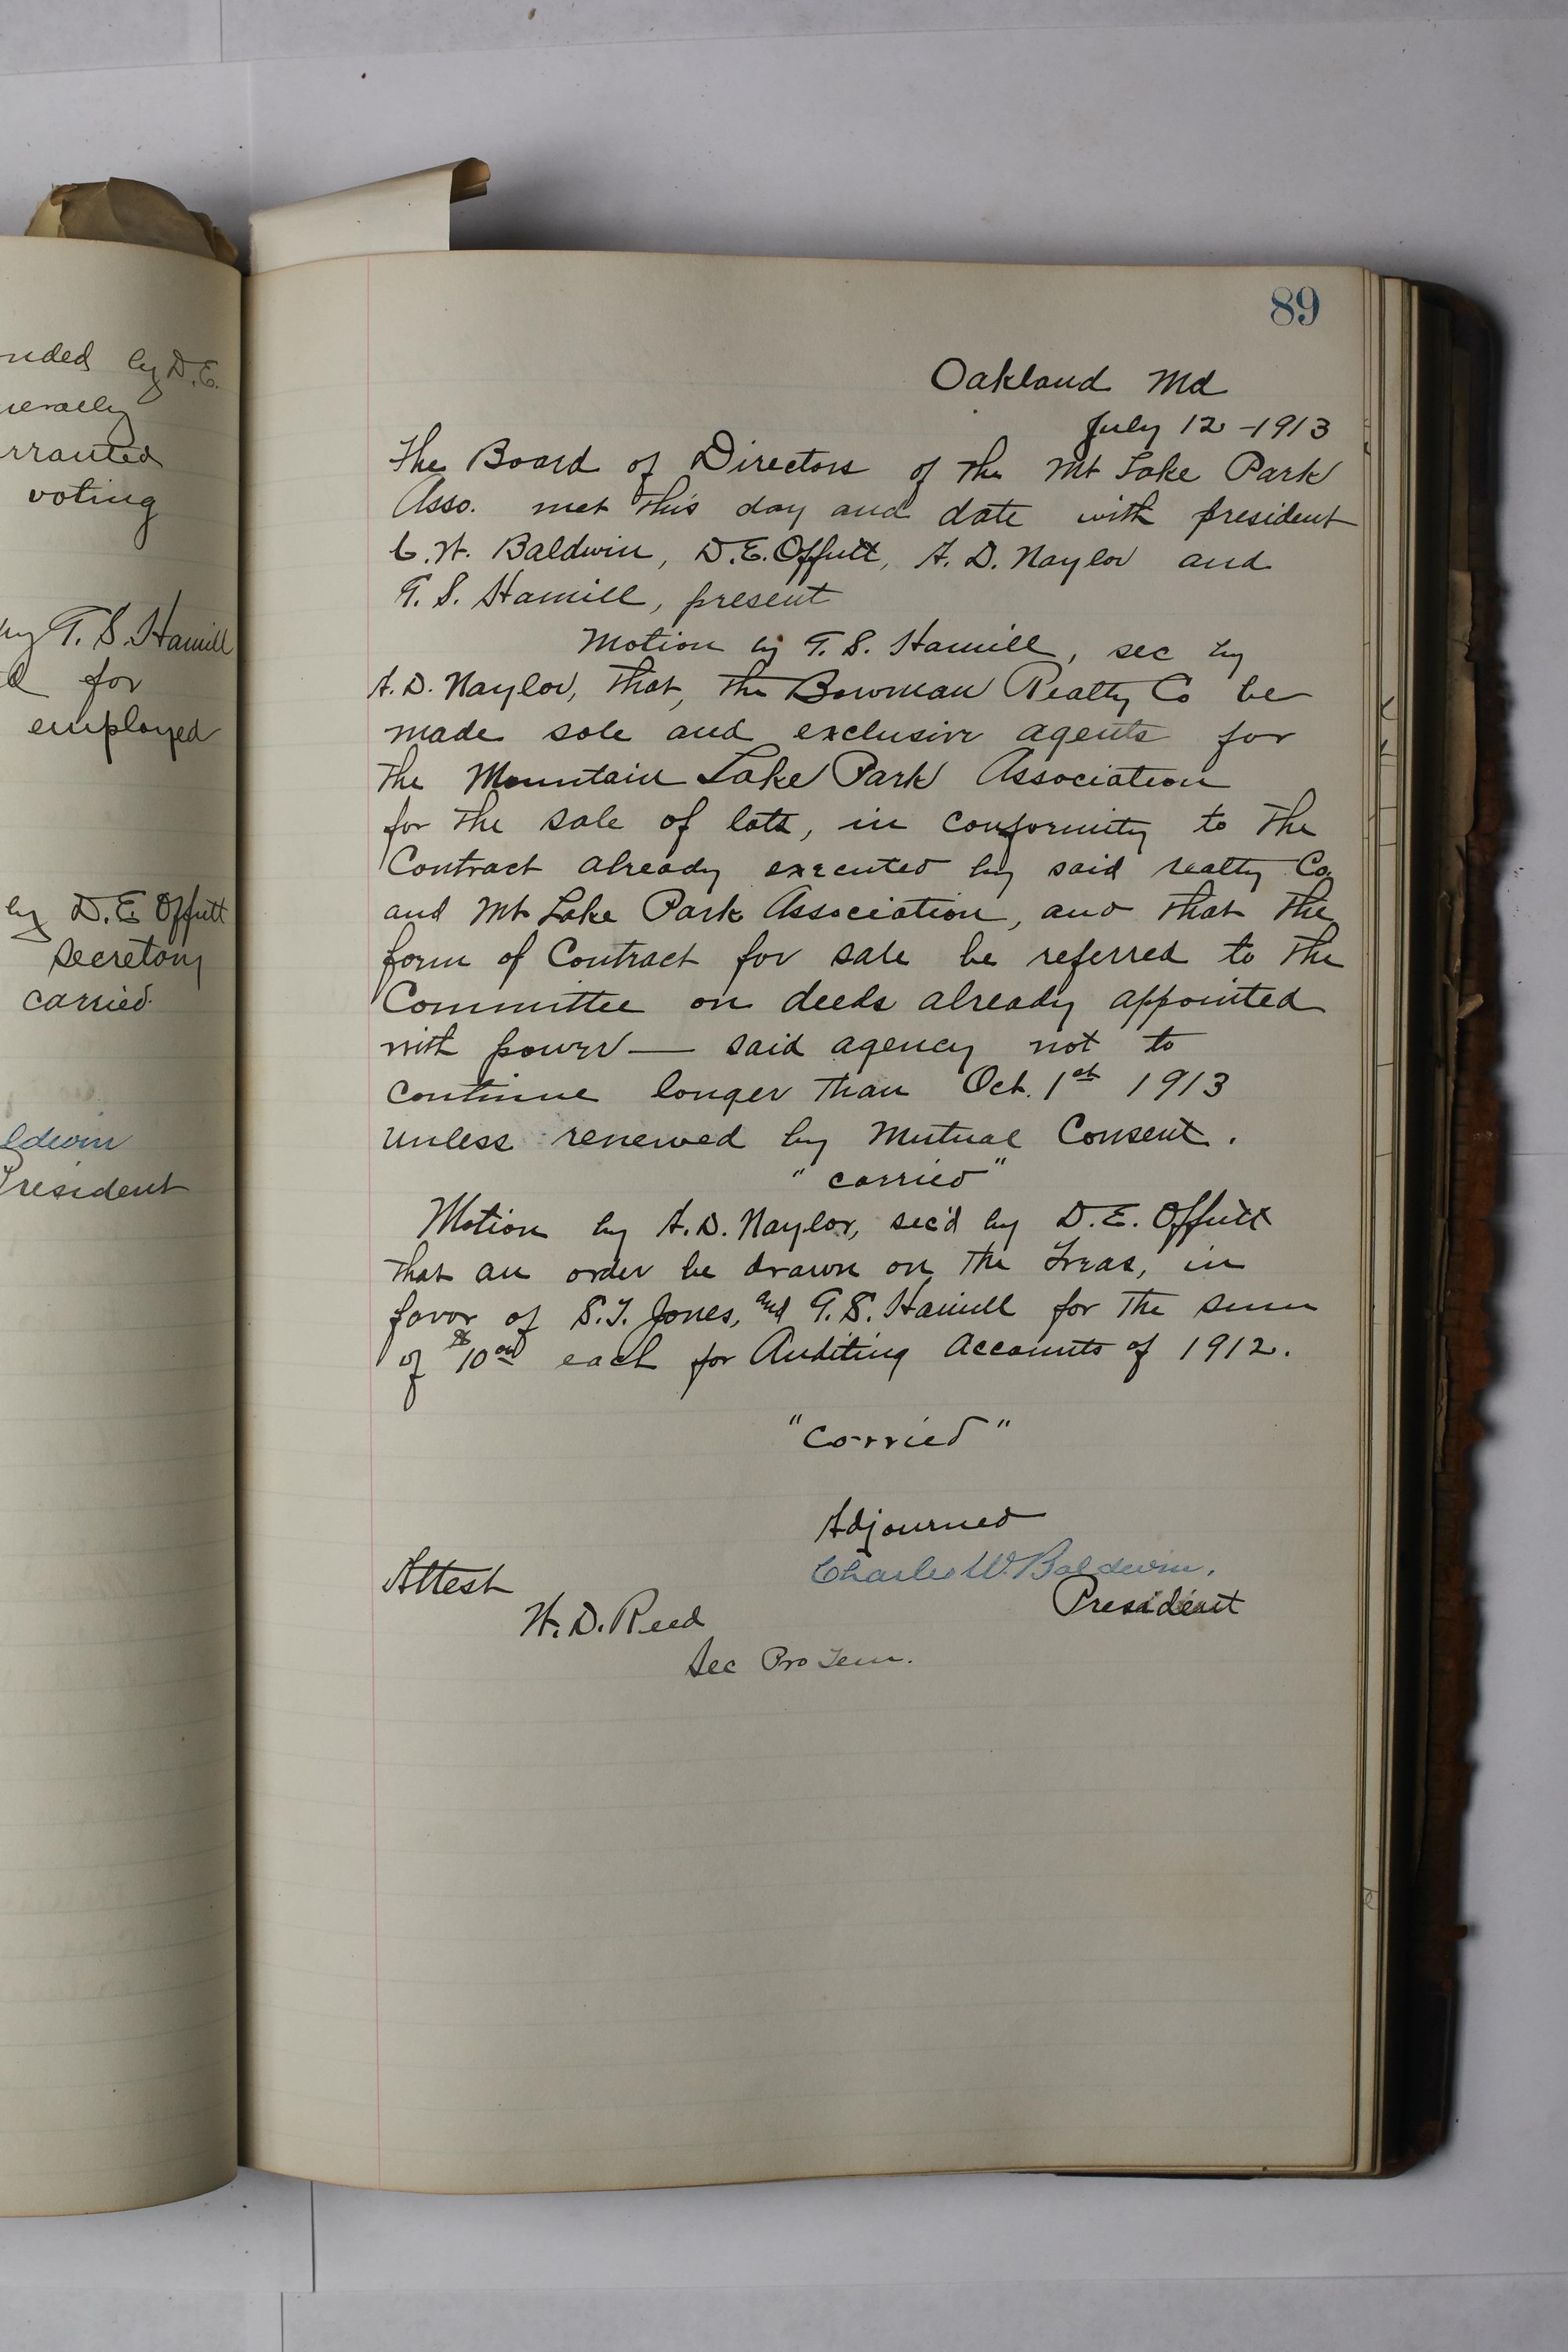 nded by D.E.
nerally
rranted
voting
by G. S. Hamill
for
employed
by D. E. Offutt
Secretary
carried.
ldwin
President
89
Oakland Md
July 12 - 1913
The Board of Directors of the Mt Lake Park
Asso. met this day and date with president
C. W. Baldwin, D. E. Offutt, A. D. Naylor and
G. S. Hamill, present
Motion by G. S. Hamill, sec by
A. D. Naylor, that, the Bowman Realty Co be
made sole and exclusive agents for
the Mountain Lake Park Association
for the sale of lots, in conformity to the
Contract already executed by said realty Co
and Mt Lake Park Association, and that the
form of Contract for sale be referred to the
Committee on deeds already appointed
with power — said agency not to
continue longer than Oct. 1st 1913
unless renewed by Mutual Consent.
"carried"
Motion by A. D. Naylor, sec'd by D. E. Offutt
that an order be drawn on the Treas, in
favor of S. T. Jones, and G. S. Hamill for the sum
of $10 00 each for Auditing Accounts of 1912.
"Carried"
Adjourned
Charles W. Baldwin.
President
Attest
W. D. Reed
Sec Pro Tem.